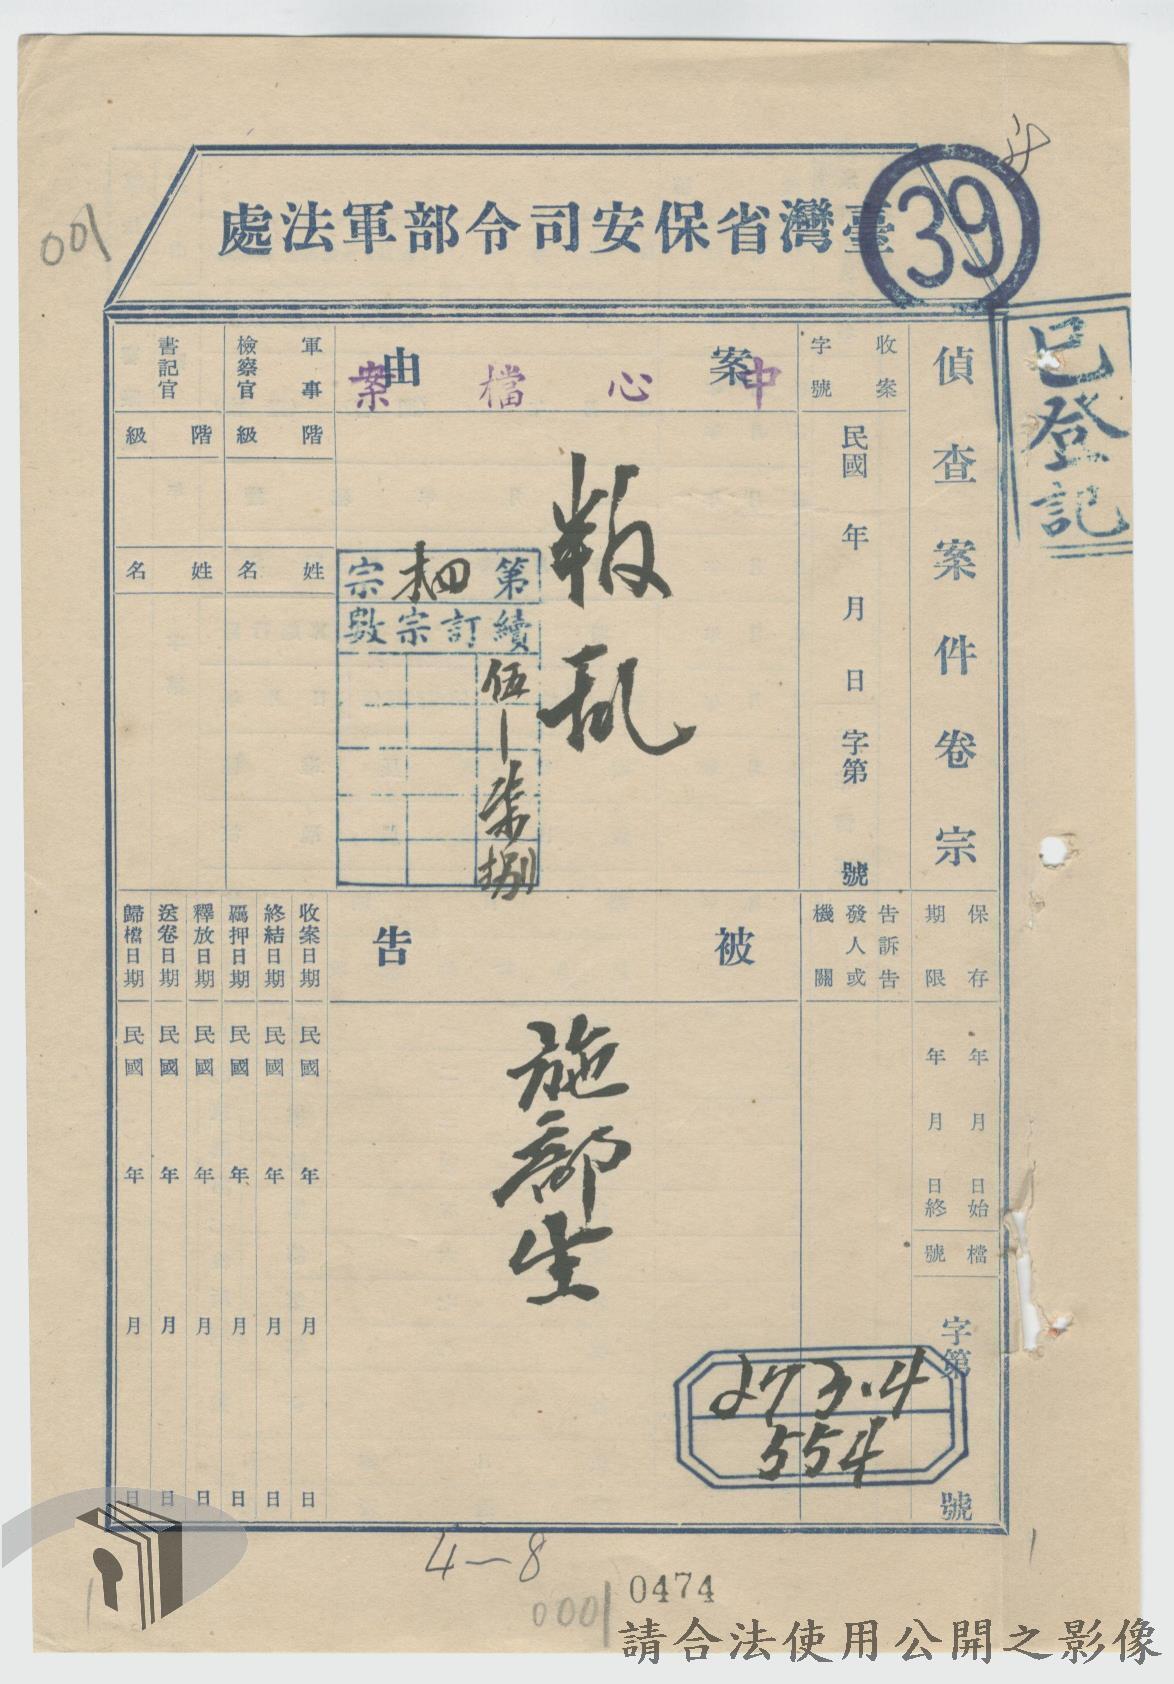 001
臺灣省保安司令部軍法處
39
已登記
偵查案件卷宗
收案字號
民國 年 月 日 字第 號
案由
中心檔案
叛乱
第 四 宗
續訂宗數
伍—柒
捌
軍事檢察官
階級
姓名
書記官
階級
姓名
保存期限
年 月 日始
年 月 日終
檔號
字第 號
告訴告發人或機關
被告
施部生
收案日期 民國 年 月 日
終結日期 民國 年 月 日
羈押日期 民國 年 月 日
釋放日期 民國 年 月 日
送卷日期 民國 年 月 日
歸檔日期 民國 年 月 日
273.4
554
4—8
0001
0474
請合法使用公開之影像